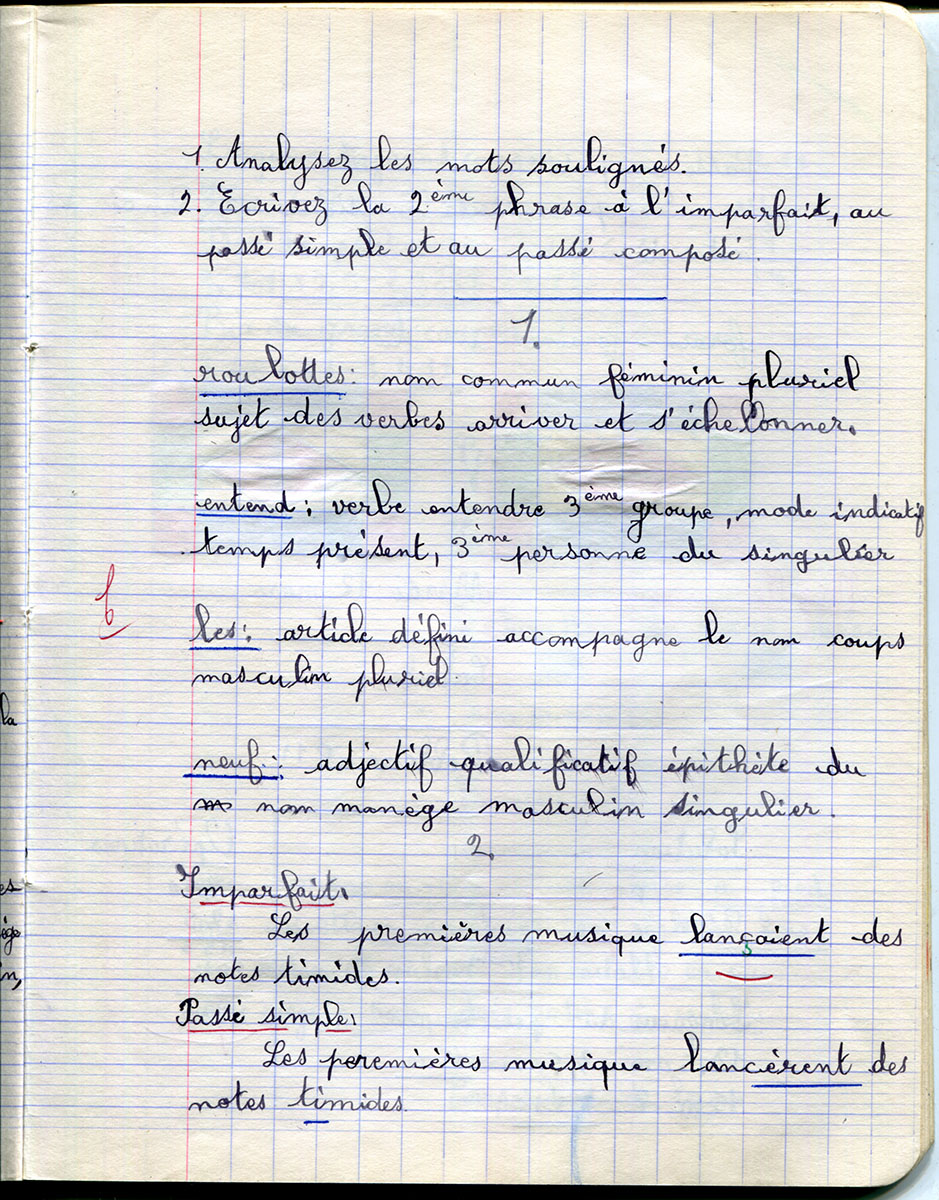 1. Analysez les mots soulignés.
2. Ecrivez la 2ème phrase à l'imparfait, au
passé simple et au passé composé.
1.
roulottes: nom commun féminin pluriel
sujet des verbes arriver et s'échelonner.
entend: verbe entendre 3ème groupe, mode indicatif
temps présent, 3ème personne du singulier
les: article défini accompagne le nom coups
la
masculin pluriel.
neuf: adjectif qualificatif épithète du
nom manège masculin singulier.
2.
Imparfait.
Les premières musique lançaient des
notes timides.
Passé simple.
Les peremières musique lancèrent des
notes timides.